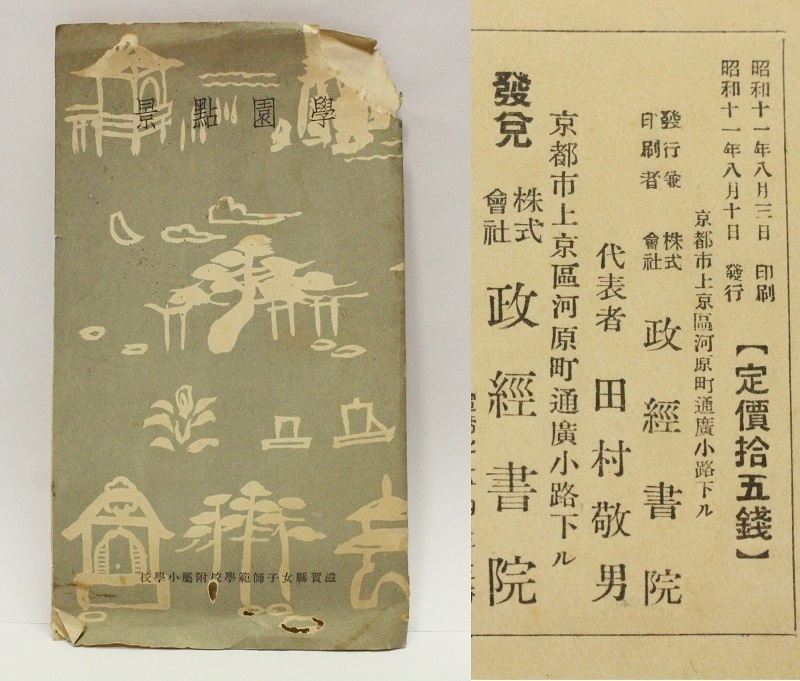 學園點景
滋賀縣女子師範學校附屬小學校
昭和十一年八月三日　印刷
昭和十一年八月十日　發行
【定價拾五錢】
京都市上京區河原町通廣小路下ル
發行兼
印刷者
株式
會社
政經書院
代表者　田村敬男
京都市上京區河原町通廣小路下ル
發兌
株式
會社
政經書院